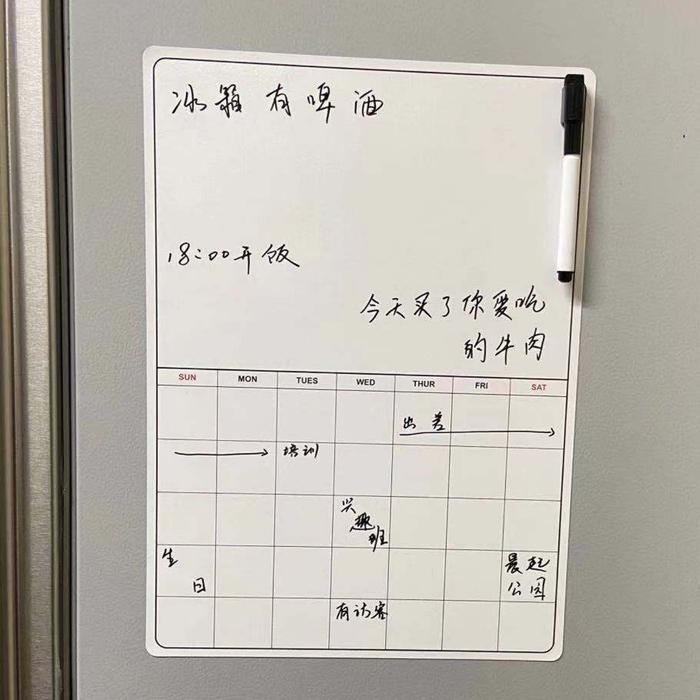 冰箱有啤酒
18:00开饭
今天买了你爱吃
的牛肉
SUN MON TUES WED THUR FRI SAT
出差
培训
兴趣班
生日
晨起
公园
有访客